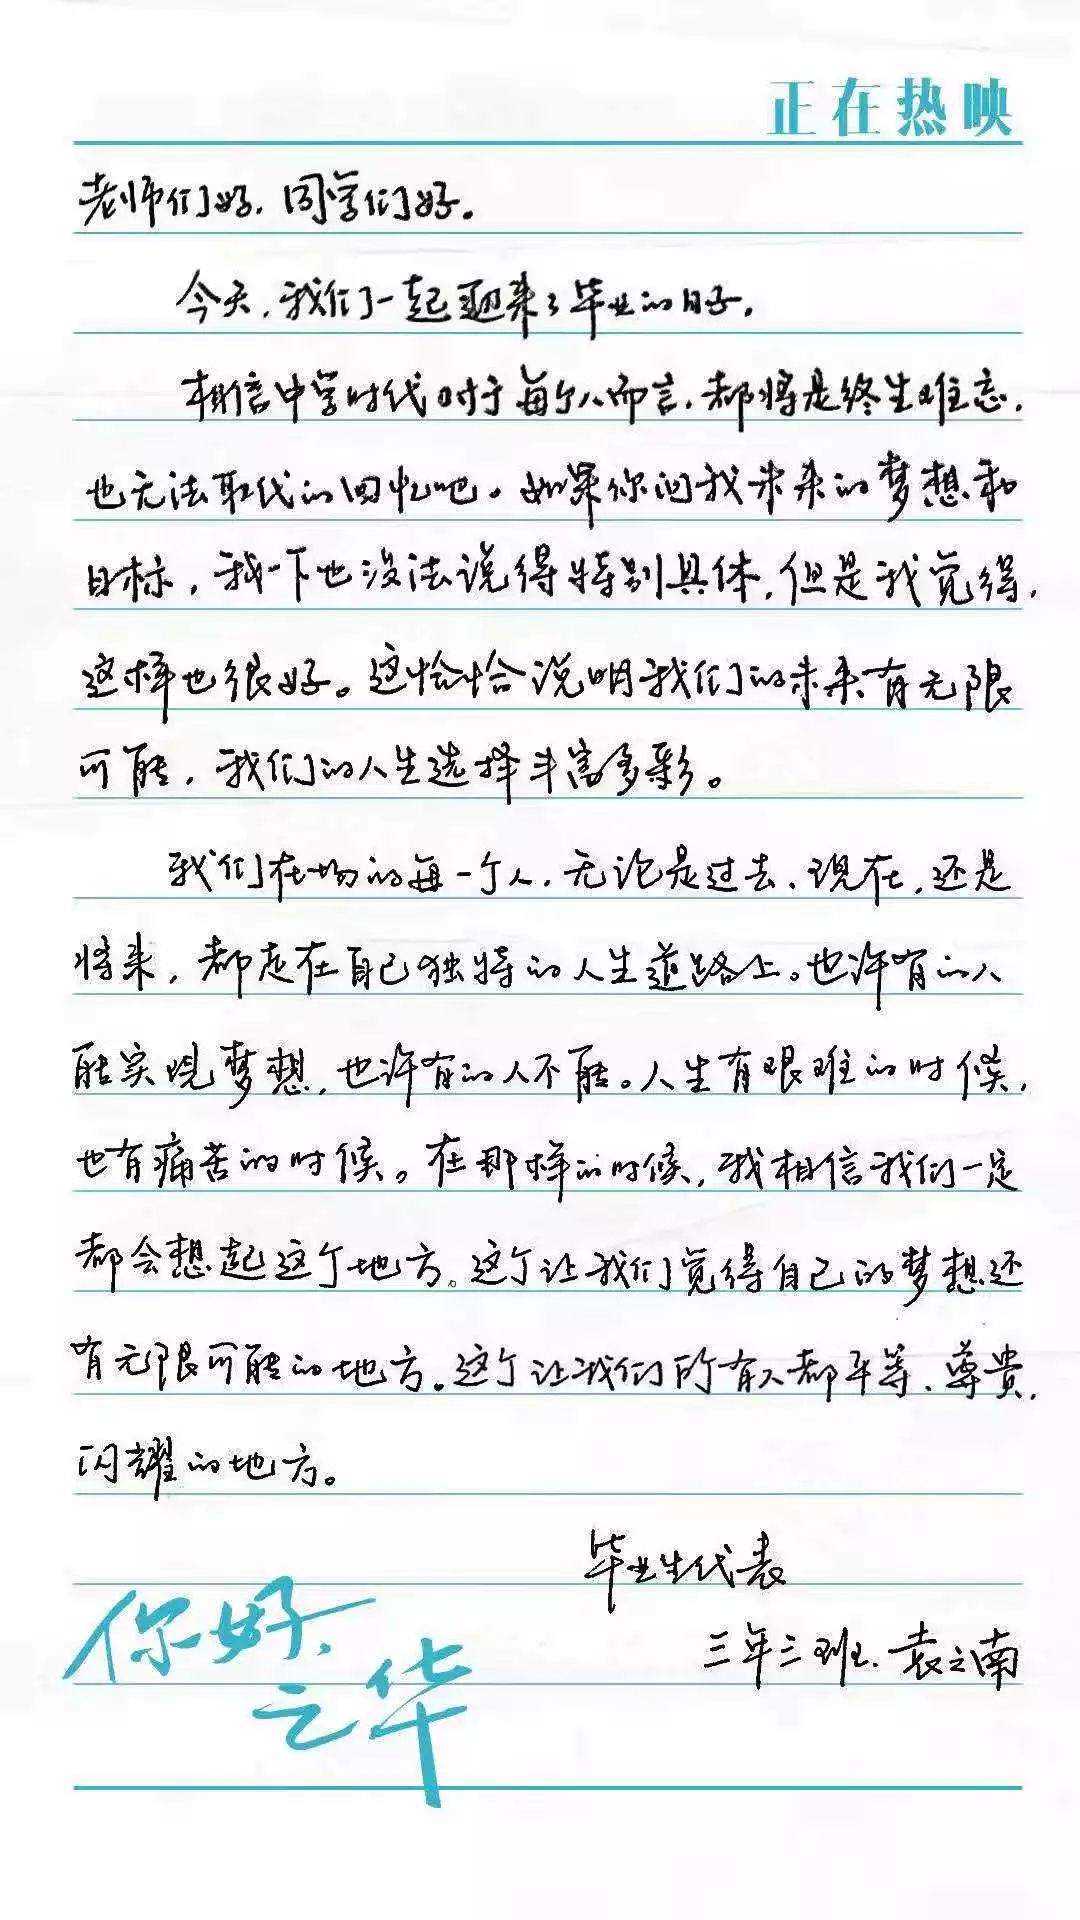 正在热映
老师们好，同学们好。
今天，我们一起迎来了毕业的日子。
相信中学时代对于每个人而言，都将是终生难忘，
也无法取代的回忆吧。如果你问我未来的梦想和
目标，我一下也没法说得特别具体，但是我觉得，
这样也很好。这恰恰说明我们的未来有无限
可能，我们的人生选择丰富多彩。
我们在场的每一个人，无论是过去、现在，还是
将来，都走在自己独特的人生道路上。也许有的人
能实现梦想，也许有的人不能。人生有艰难的时候，
也有痛苦的时候。在那样的时候，我相信我们一定
都会想起这个地方。这个让我们觉得自己的梦想还
有无限可能的地方。这个让我们所有人都平等、尊贵，
闪耀的地方。
毕业生代表
三年三班．袁之南
你好，
之华